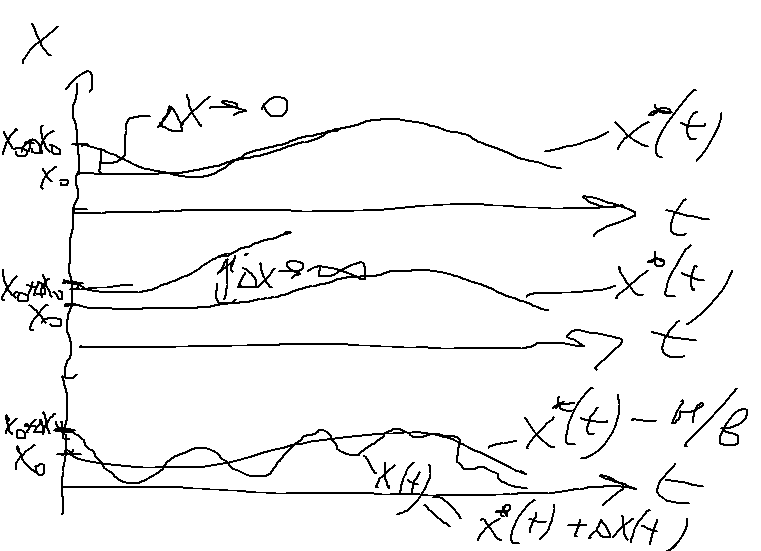 X
ΔX → 0
x₀+Δx₀
x₀
x*(t)
t
x₀+Δx₀
x₀
ΔX → ∞
x*(t)
t
x₀+Δx
x₀
x*(t) – н/в
x(t)
t
x*(t) + Δx(t)